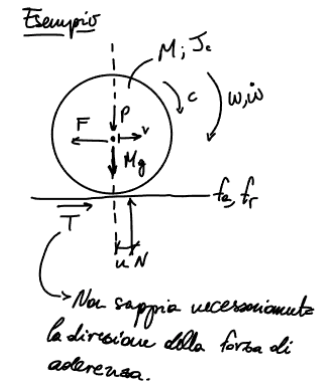 Esempio
M; Jc
C
ω, ω̇
P
F
v
Mg
fa, fr
T
u N
Non sappia necessariamente
la direzione della forza di
aderenza.